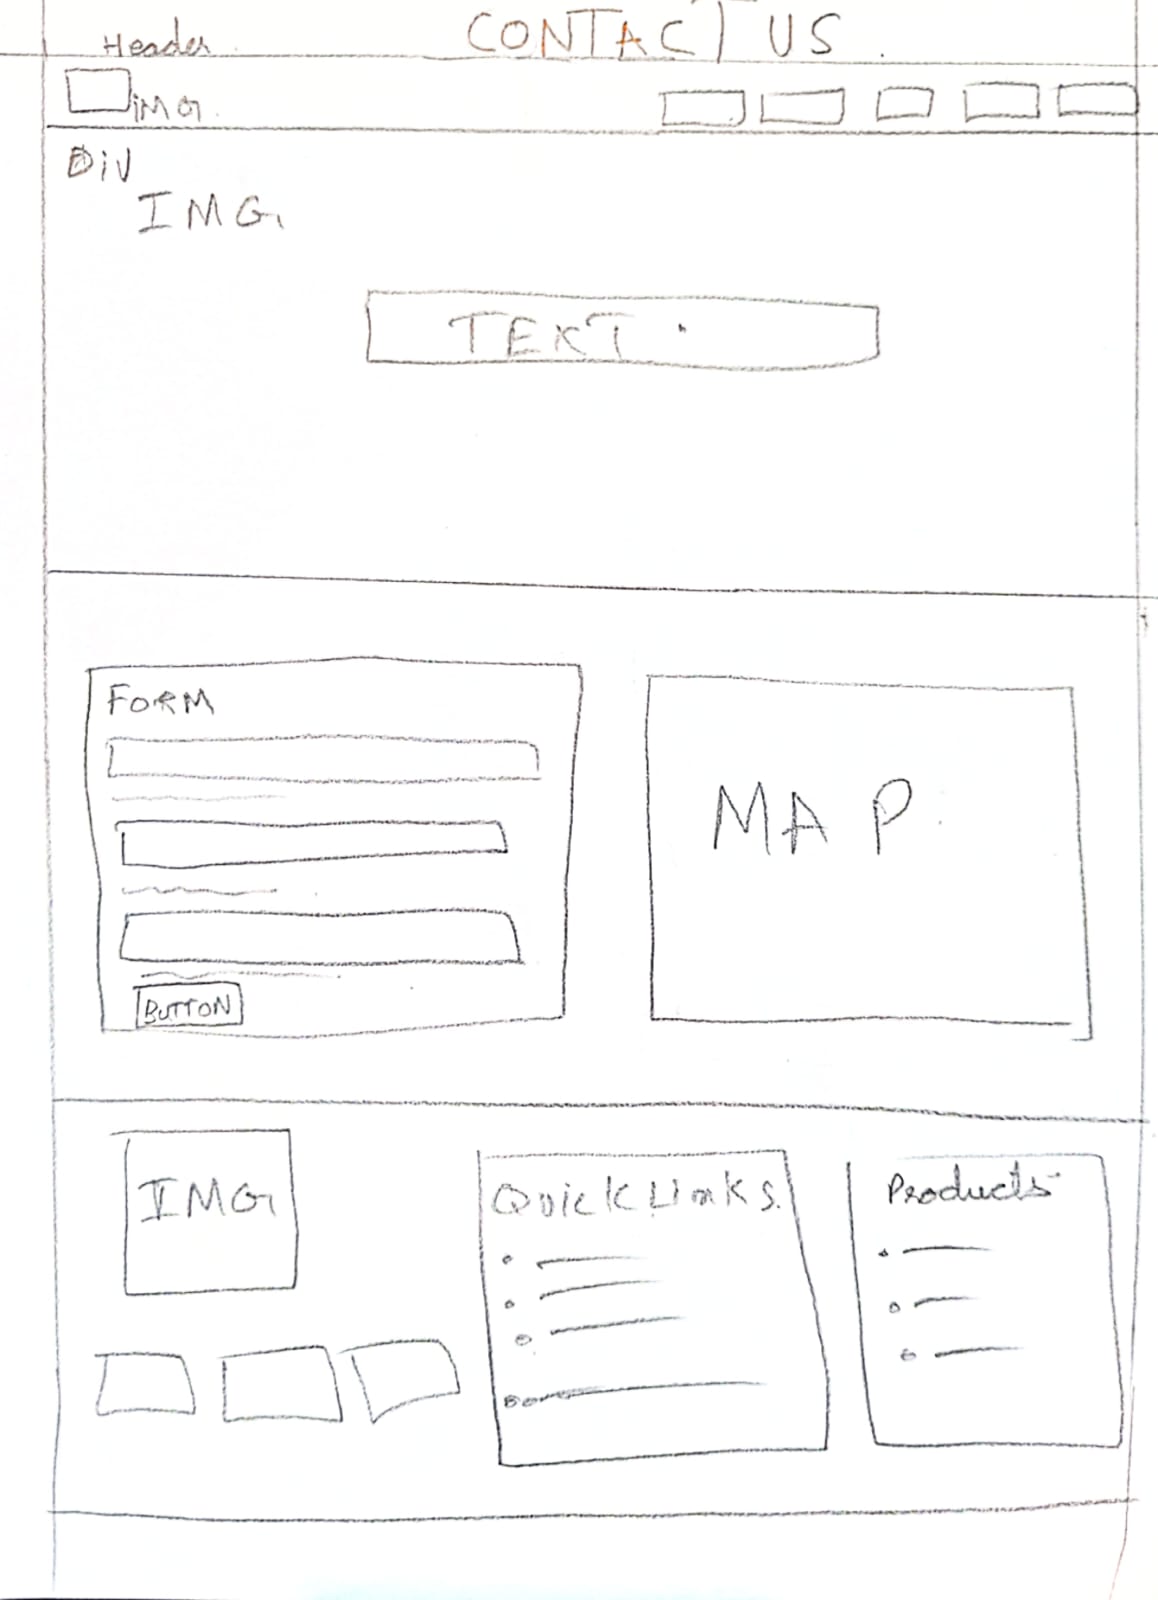 Header
CONTACT US
IMG
Div
IMG
TEXT
FORM
MAP
BUTTON
IMG
Quick Links
Products